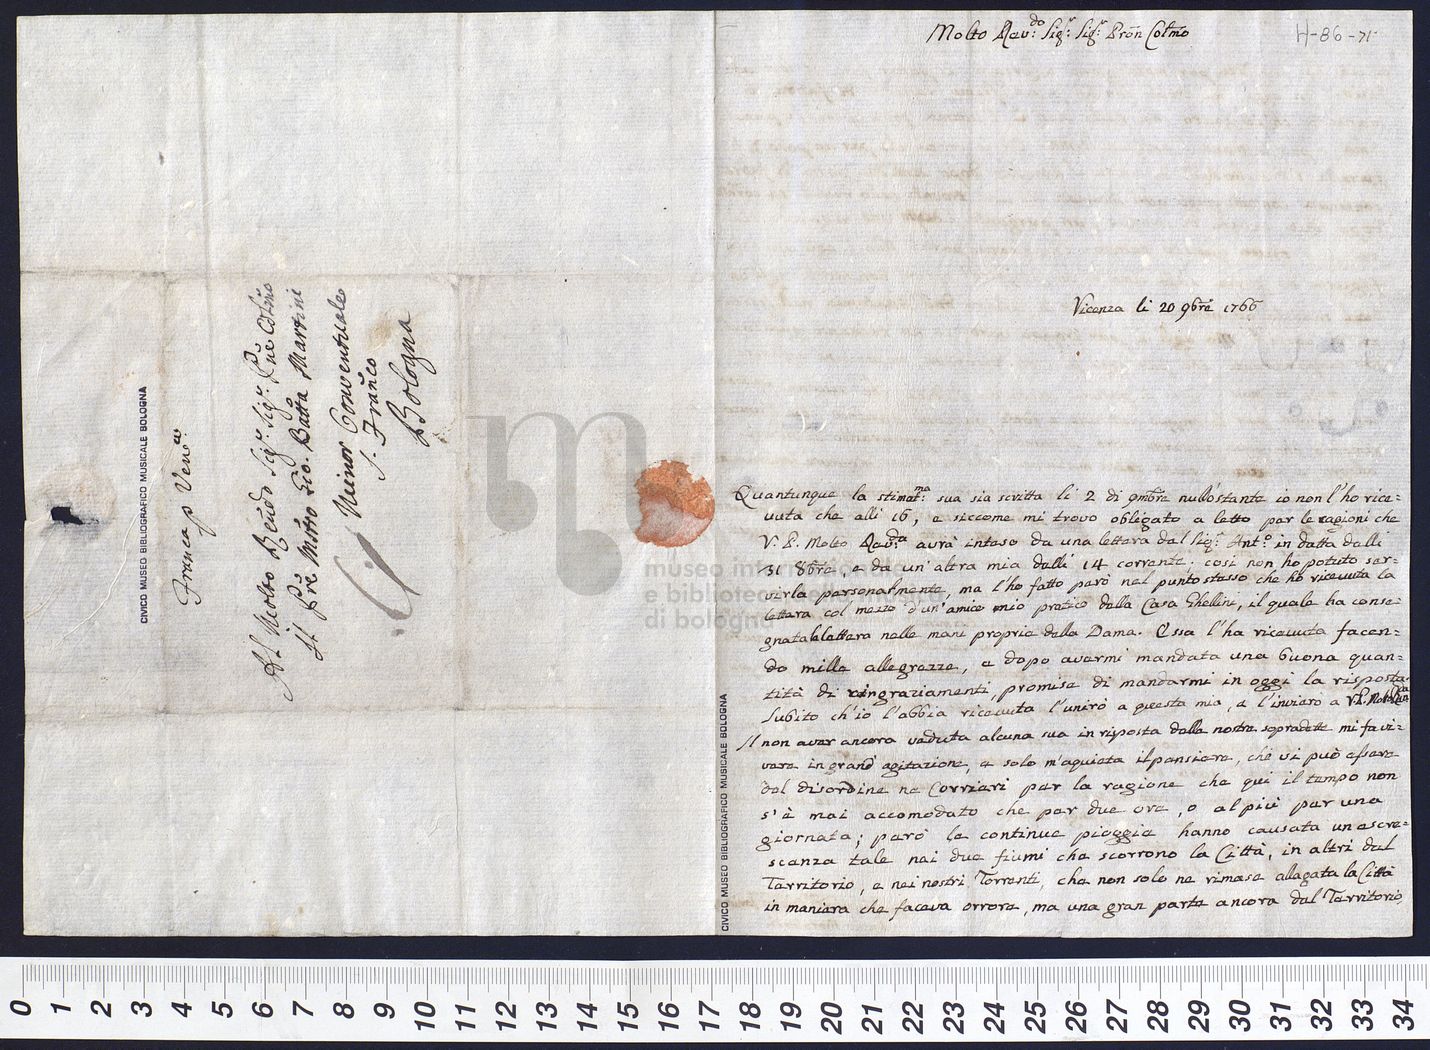 CIVICO MUSEO BIBLIOGRAFICO MUSICALE BOLOGNA
Franca p Ven.ª
Al Molto Reṽdo Sig.r Sig.r P̃ne Col̃mo
Il P̃re Mr̃o Gio. Batt̃a Martini
Minor Conventuale
S. Frañco
Bologna
Molto Rev:do Sig.r Sig.r Pron̄ Col̃mo
H-86-71
Vicenza li 20 9bre 1766
Quantunque la stimat.ma sua sia scritta li 2 di 9mbre null'ostante io non l'ho rice=
vuta che alli 16, e siccome mi trovo obligato a letto per le ragioni che
V. P. Molto Rev:da avrà inteso da una lettera del Sig.r Ant.o in datta delli
31 8bre, e da un'altra mia delli 14 corrente; così non ho potuto ser=
virla personalmente, ma l'ho fatto però nel punto stesso che ho ricevuta la
lettera col mezzo d'un'amico mio pratico della Casa Ghellini, il quale ha conse=
gnata la lettera nelle mani proprie della Dama. Essa l'ha ricevuta facen=
do mille allegrezze, e dopo avermi mandata una buona quan=
tità di ringraziamenti, promise di mandarmi in oggi la risposta.
Subito ch'io l'abbia ricevuta l'unirò a questa mia, e l'invierò a V.P. Molto Rev.da
Il non aver ancora veduta alcuna sua in risposta delle nostre sopradette mi fa vi=
vere in grand'agitazione, e solo m'aquieta il pensiere, che vi può essere
del disordine ne Corrieri per la ragione che qui il tempo non
s'è mai accomodato che per due ore, o al più per una
giornata; però le continue pioggie hanno causata un escre=
scenza tale nei due fiumi che scorrono la Città, in altri del
Territorio, e nei nostri Torrenti, che non solo ne rimase allagata la Città
in maniera che faceva orrore, ma una gran parte ancora del Territorio,
CIVICO MUSEO BIBLIOGRAFICO MUSICALE BOLOGNA
museo internazionale
e biblioteca
di bologna
0 1 2 3 4 5 6 7 8 9 10 11 12 13 14 15 16 17 18 19 20 21 22 23 24 25 26 27 28 29 30 31 32 33 34